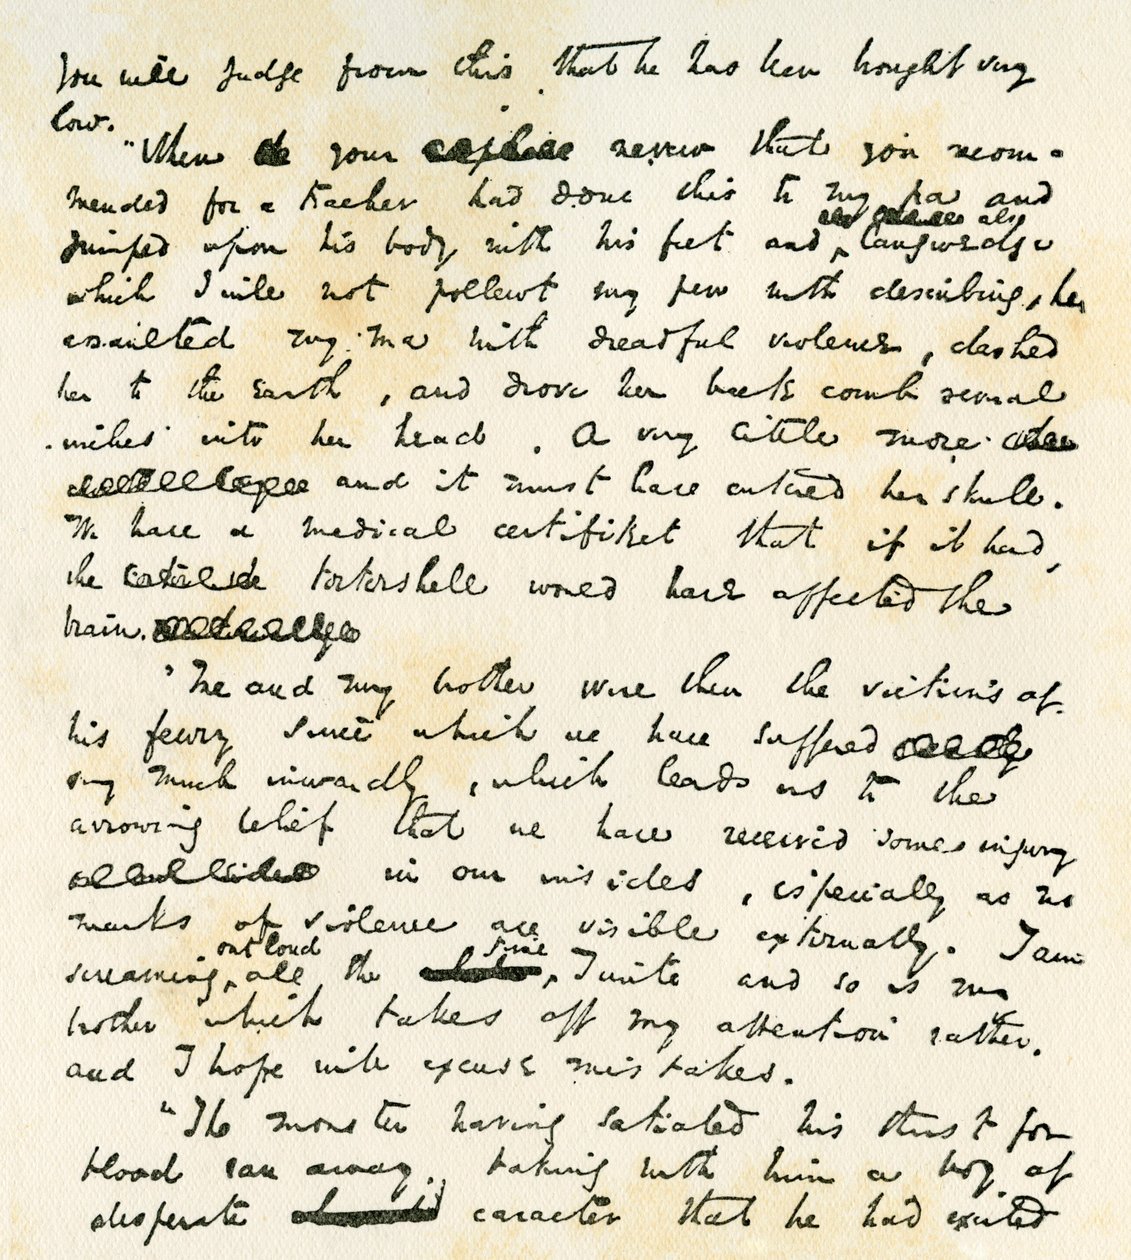 You will judge from this that he has been brought very
low.
"When your nevew that you recom-
mended for a teacher had done this to my pa and
jumped upon his body with his feet and also langwedge
which I will not pollewt my pen with describing, he
assailted my ma with dreadful violence, dashed
her to the earth, and drove her back comb several
inches into her head. A very little more
and it must have entered her skull.
We have a medical certifiket that if it had,
the tortershell would have affected the
brain.
"Me and my brother were then the victims of
his feury since which we have suffered
very much inwardly, which leads us to the
arrowing belief that we have received some injury
in our insides, especially as no
marks of violence are visible externally. I am
screaming out loud all the time I write and so is my
brother which takes off my attention rather.
and I hope will excuse mistakes.
"The monster having satiated his thirst for
blood ran away, taking with him a boy of
desperate caracter that he had excited